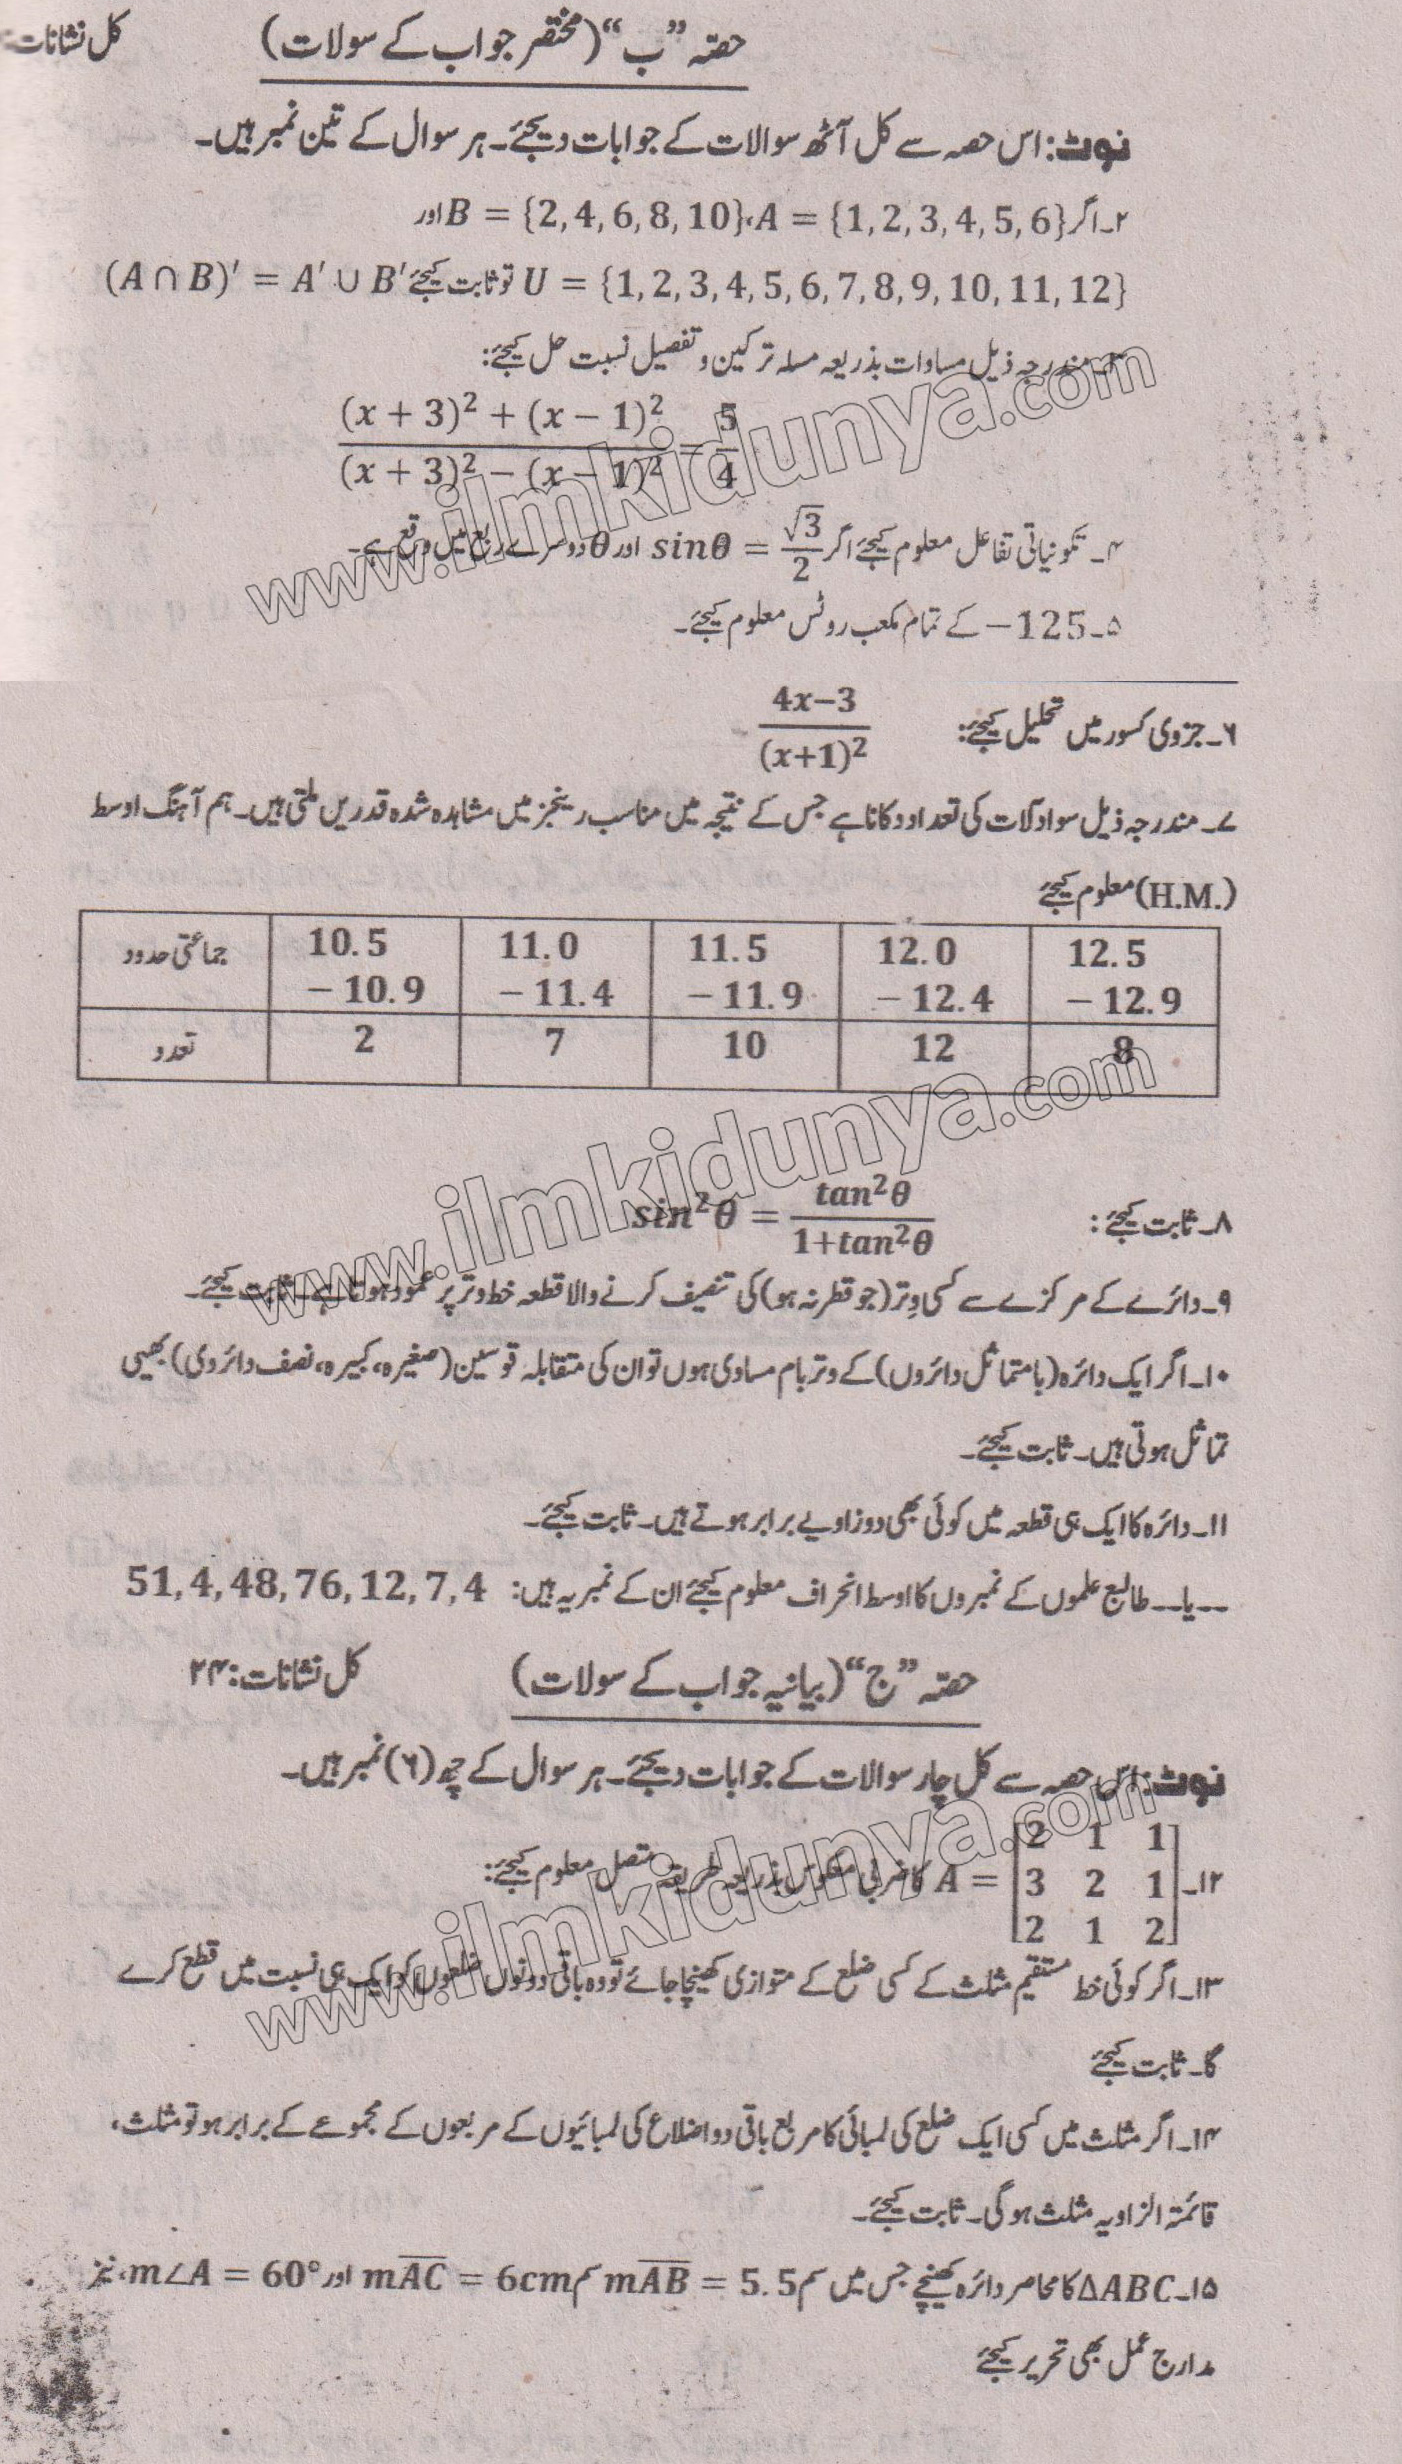 حصّہ ”ب“ (مختصر جواب کے سولات) کل نشانات:
نوٹ: اس حصہ سے کل آٹھ سوالات کے جوابات دیجئے۔ ہر سوال کے تین نمبر ہیں۔
۲۔ اگر A = {1, 2, 3, 4, 5, 6}، B = {2, 4, 6, 8, 10} اور
U = {1, 2, 3, 4, 5, 6, 7, 8, 9, 10, 11, 12} تو ثابت کیجئے (A ∩ B)′ = A′ ∪ B′
۳۔ مندرجہ ذیل مساوات بذریعہ مسلہ ترکین و تفصیل نسبت حل کیجئے:
((x + 3)² + (x − 1)²) / ((x + 3)² − (x − 1)²) = 5/4
۴۔ تکونیاتی تفاعل معلوم کیجئے اگر sinθ = √3/2 اور θ دوسرے ربع میں وقع ہے۔
۵۔ −125 کے تمام مکعب روٹس معلوم کیجئے۔
۶۔ جزوی کسور میں تحلیل کیجئے: (4x−3)/(x+1)²
۷۔ مندرجہ ذیل سوا دکانات کی تعداد ہے جس کے نتیجہ میں مناسب رینجز میں مشاہدہ شدہ قدریں ملتی ہیں۔ ہم آہنگ اوسط
(H.M.) معلوم کیجئے
جماعتی حدود 10.5 − 10.9 11.0 − 11.4 11.5 − 11.9 12.0 − 12.4 12.5 − 12.9
تعدد 2 7 10 12 8
۸۔ ثابت کیجئے: sin²θ = tan²θ / (1+tan²θ)
۹۔ دائرے کے مرکزے سے کسی وتر (جو قطر نہ ہو) کی تنصیف کرنے والا قطعہ خط وتر پر عمود ہوتا ہے۔ ثابت کیجئے۔
۱۰۔ اگر ایک دائرہ (یا متماثل دائروں) کے وتر باہم مساوی ہوں تو ان کی متقابلہ قوسین (صغیرہ، کبیرہ، نصف دائروی) بھی
تماثل ہوتی ہیں۔ ثابت کیجئے۔
۱۱۔ دائرہ کا ایک ہی قطعہ میں کوئی بھی دو زاویے برابر ہوتے ہیں۔ ثابت کیجئے۔
--یا-- طالبع علموں کے نمبروں کا اوسط انحراف معلوم کیجئے ان کے نمبر یہ ہیں: 51, 4, 48, 76, 12, 7, 4
حصّہ ”ج“ (بیانیہ جواب کے سولات) کل نشانات: ۲۴
نوٹ: اس حصہ سے کل چار سوالات کے جوابات دیجئے۔ ہر سوال کے چھ (۶) نمبر ہیں۔
۱۲۔ A = [2 1 1; 3 2 1; 2 1 2] کا ضربی معکوس بذریعہ طریقہ متصل معلوم کیجئے:
۱۳۔ اگر کوئی خط مستقیم مثلث کے کسی ضلع کے متوازی کھینچا جائے تو وہ باقی دونوں ضلعوں کو ایک ہی نسبت میں قطع کرے
گا۔ ثابت کیجئے
۱۴۔ اگر مثلث میں کسی ایک ضلع کی لمبائی کا مربع باقی دو اضلاع کی لمبائیوں کے مربعوں کے مجموعے کے برابر ہو تو مثلث،
قائمتہ الزاویہ مثلث ہوگی۔ ثابت کیجئے۔
۱۵۔ ΔABC کا محاصر دائرہ کھینچے جس میں سم mAB = 5.5 سم mAC = 6cm اور m∠A = 60°، نیز
مدارج عمل بھی تحریر کیجئے
www.ilmkidunya.com
www.ilmkidunya.com
www.ilmkidunya.com